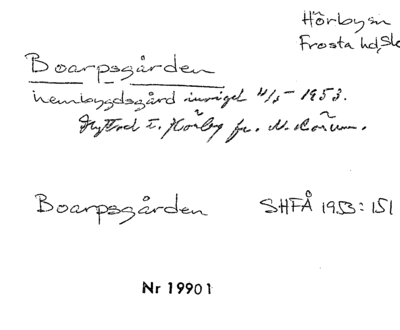 Hörby sn
Frosta hd, Sk
Boarpsgården
hembygdsgård invigd 4/5 1953.
Flyttad t. Hörby fr. N. Rörum.
Boarpsgården SHFÅ 1953:151
Nr 19901